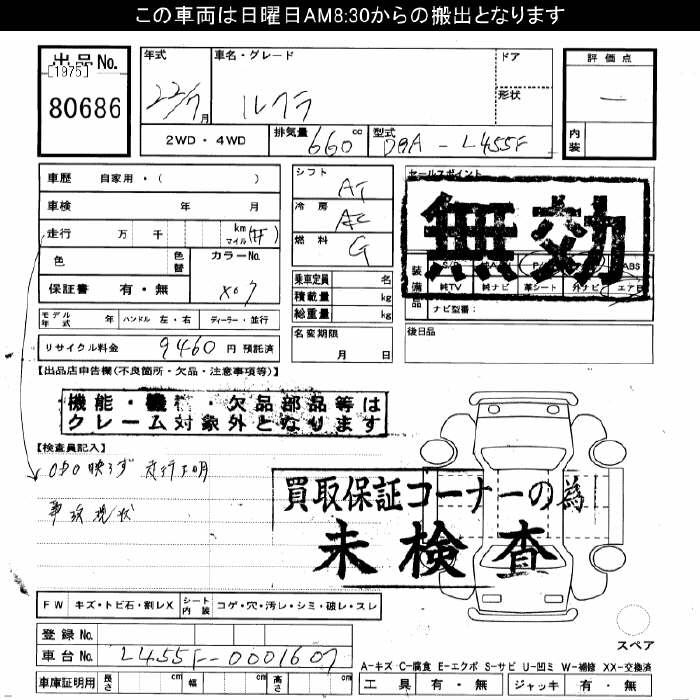 この車両は日曜日AM8:30からの搬出となります
出品No.
[1975]
80686
年式 22/7月 車名・グレード ルクラ ドア
形状
評価点
一
内装
2WD・4WD 排気量 660 cc 型式 DBA-L455F
車歴 自家用・( )
車検 年 月
走行 万 千 km マイル (不明)
色 色替 カラーNo. X07
保証書 有・無
シフト AT
冷房 AC
燃料 G
乗車定員 名
積載量 kg
総重量 kg
セールスポイント
無効
装備品
ABS
純TV 純ナビ 革シート 外ナビ エアB
ナビ型番:
モデル年式 年 ハンドル 左・右 ディーラー・並行
名変期限 月 日
後日品
リサイクル料金 9460 円 預託済
【出品店申告欄(不良箇所・欠品・注意事項等)】
機能・機構・欠品部品等は
クレーム対象外となります
【検査員記入】
ODO映らず 走行不明
事故現状
買取保証コーナーの為
未検査
FW キズ・トビ石・割レX シート内装 コゲ・穴・汚レ・シミ・破レ・スレ
スペア
登録No.
車台No. L455F-0001607
A-キズ C-腐食 E-エクボ S-サビ U-凹ミ W-補修 XX-交換済
車庫証明用 長さ cm 幅 cm 高さ cm
工具 有・無 ジャッキ 有・無